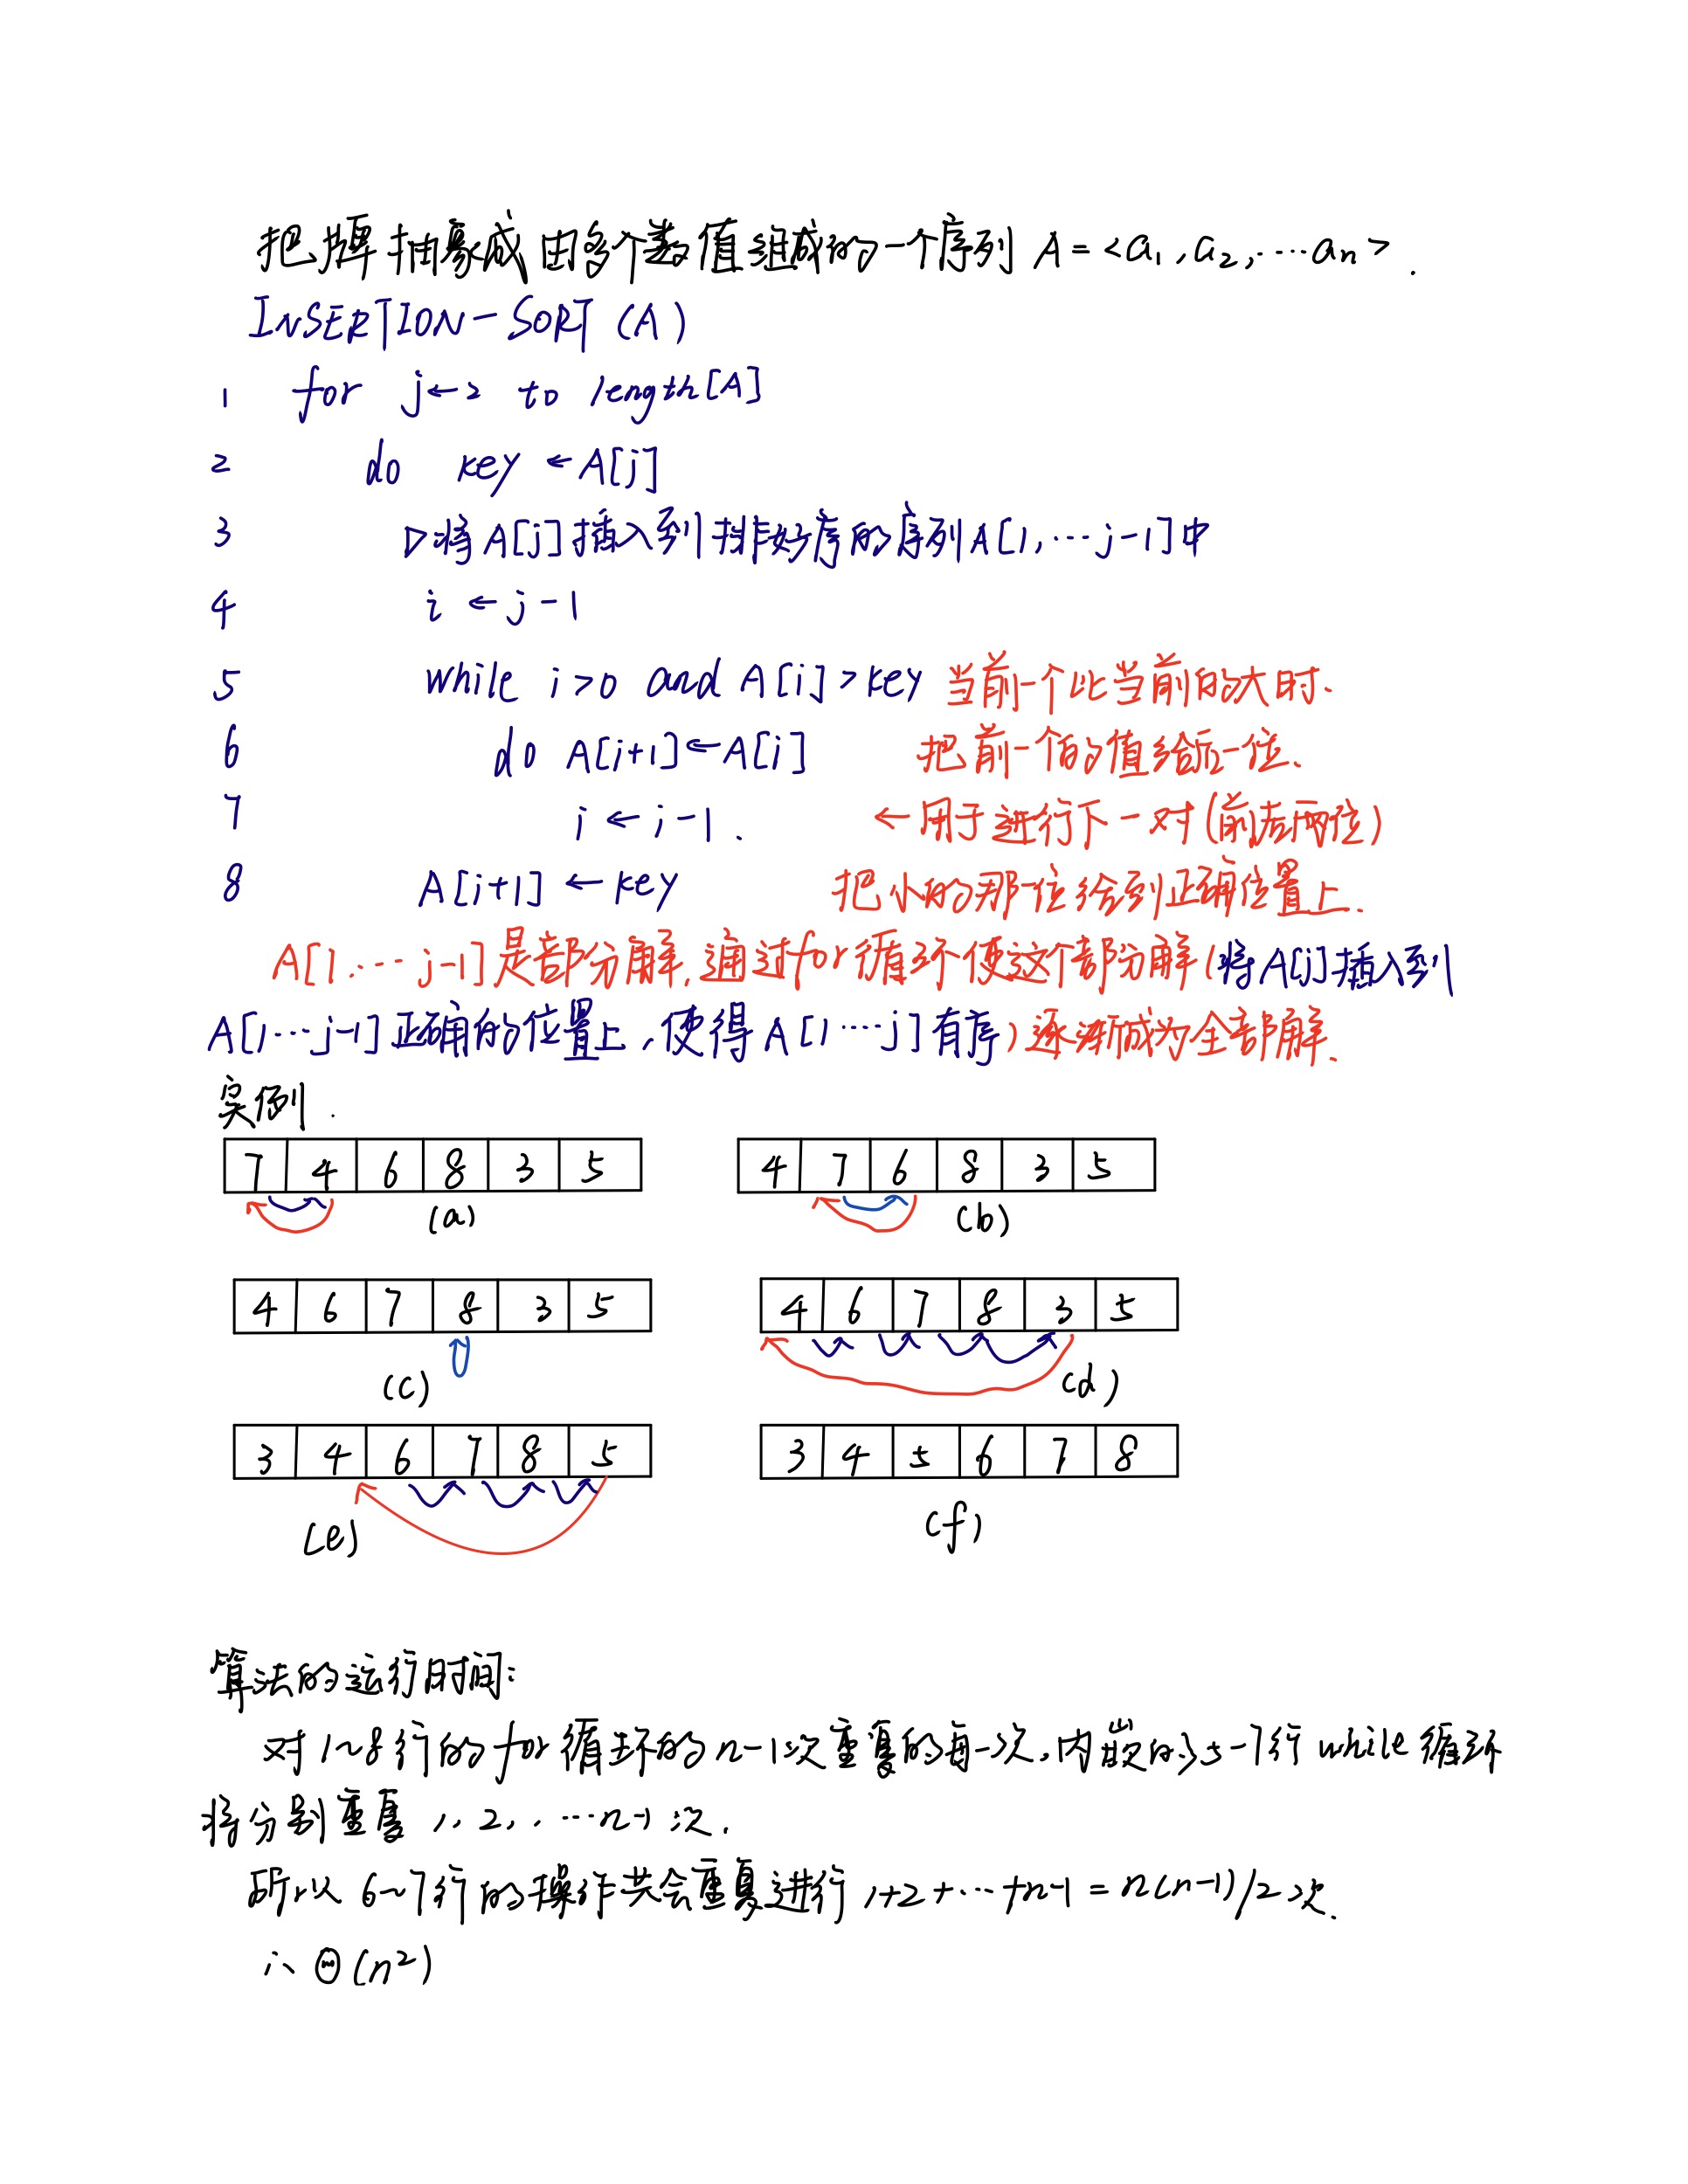 把牌抽象成由多个数值组成的一个序列 A=<a₁,a₂,…aₙ>.
INSERTION-SORT (A)
1 for j←2 to length[A]
2 do key ←A[j]
3 ▷将A[j]插入到排好序的序列A[1,…j-1]中
4 i ←j-1
5 while i>0 and A[i]>key 当前一个比当前的大时.
6 do A[i+1]←A[i] 把前一个的值给后一位.
7 i ←i-1. ←用于进行下一对(前后两位)
8 A[i+1] ←key 把小的那一位给到正确位置上.
A[1.…j-1]是部分解,通过for循环使这个部分解(将A[j]插入到
A[1…j-1]正确的位置上,使得A[1…j]有序)逐渐成为全部解.
实例.
7 4 6 8 3 5 4 7 6 8 3 5
(a) (b)
4 6 7 8 3 5 4 6 7 8 3 5
(c) (d)
3 4 6 7 8 5 3 4 5 6 7 8
(e) (f)
算法的运行时间:
对1~8行的for循环的n-1次重复的每一次,内嵌的5-7行while循环
将分别重复1,2,,…n-1次.
所以6~7行的操作共会重复进行1+2+…+n-1=n(n-1)/2次.
∴Θ(n²)